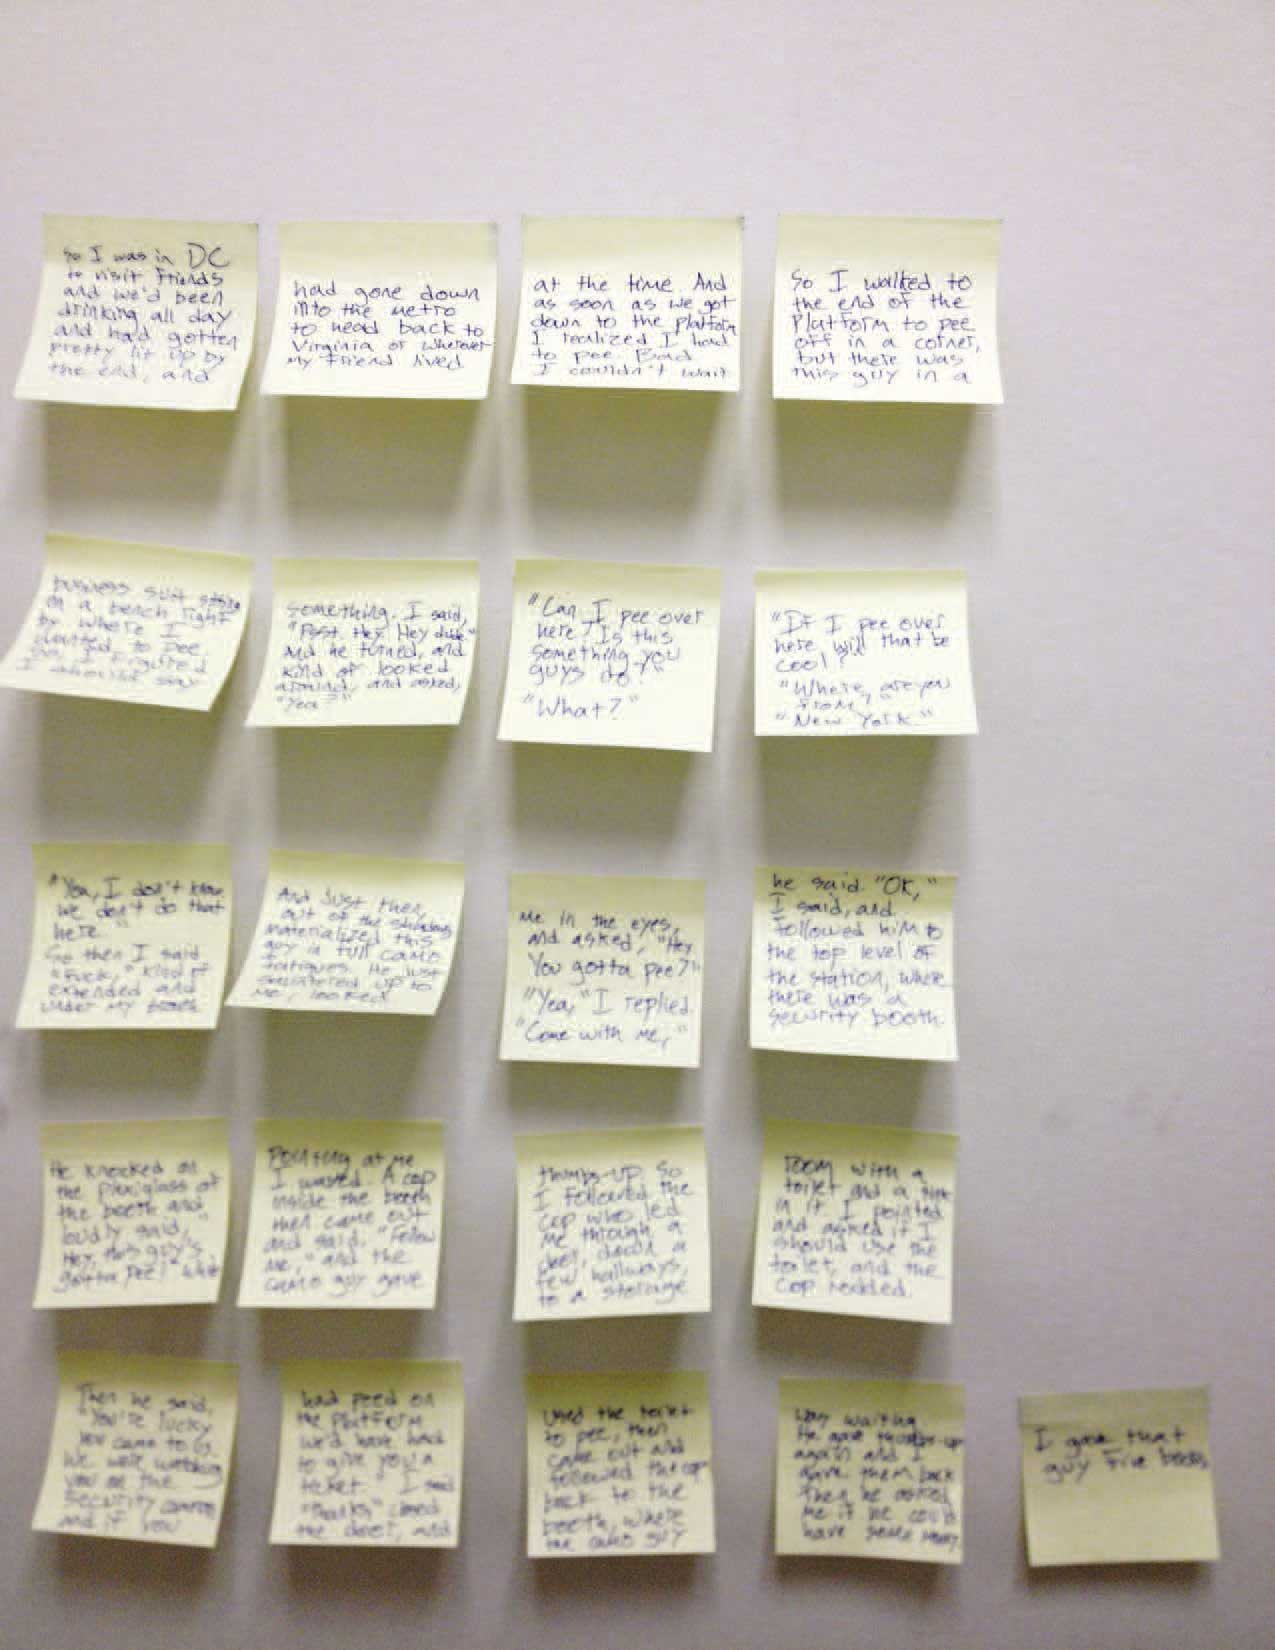 So I was in DC
to visit friends
and we'd been
drinking all day
and had gotten
pretty lit up by
the end, and
had gone down
into the metro
to head back to
Virginia or wherever
my friend lived
at the time. And
as soon as we got
down to the platform
I realized I had
to pee. Bad.
I couldn't wait
So I walked to
the end of the
platform to pee
off in a corner,
but there was
this guy in a
business suit sitting
on a bench right
by where I
wanted to pee.
So, I figured
I should say
something. I said,
"Psst. Hey. Hey dude"
And he turned, and
kind of looked
around, and asked,
"Yea?"
"Can I pee over
here? Is this
something you
guys do?"
"What?"
"If I pee over
here, will that be
cool?"
"Where are you
from?"
"New York"
"Yea, I don't know
we don't do that
here."
So then I said
"Fuck," kind of
extended and
under my breath.
And just then,
out of the shadows
materialized this
guy in full camo
fatigues. He just
sauntered up to
me, looked
me in the eyes,
and asked, "Hey
You gotta pee?"
"Yea," I replied.
"Come with me,"
he said. "OK,"
I said, and
followed him to
the top level of
the station, where
there was a
security booth.
He knocked on
the plexiglass of
the booth and
loudly said, "
Hey, this guy's
gotta pee!" while
pointing at me
I waved. A cop
inside the booth
then came out
and said, "Follow
me," and the
camo guy gave
thumbs-up. So
I followed the
cop who led
me through a
door, down a
few hallways,
to a storage
room with a
toilet and a sink
in it. I pointed
and asked if I
should use the
toilet, and the
cop nodded.
Then he said,
"You're lucky
you came to us.
We were watching
you on the
security camera
and if you
had peed on
the platform
we'd have had
to give you a
ticket." I said
"Thanks," closed
the door, and
used the toilet
to pee, then
came out and
followed the cop
back to the
booth, where
the camo guy
was waiting.
He gave thumbs-up
again and I
gave them back
Then he asked
me if he could
have some money.
I gave that
guy five bucks.